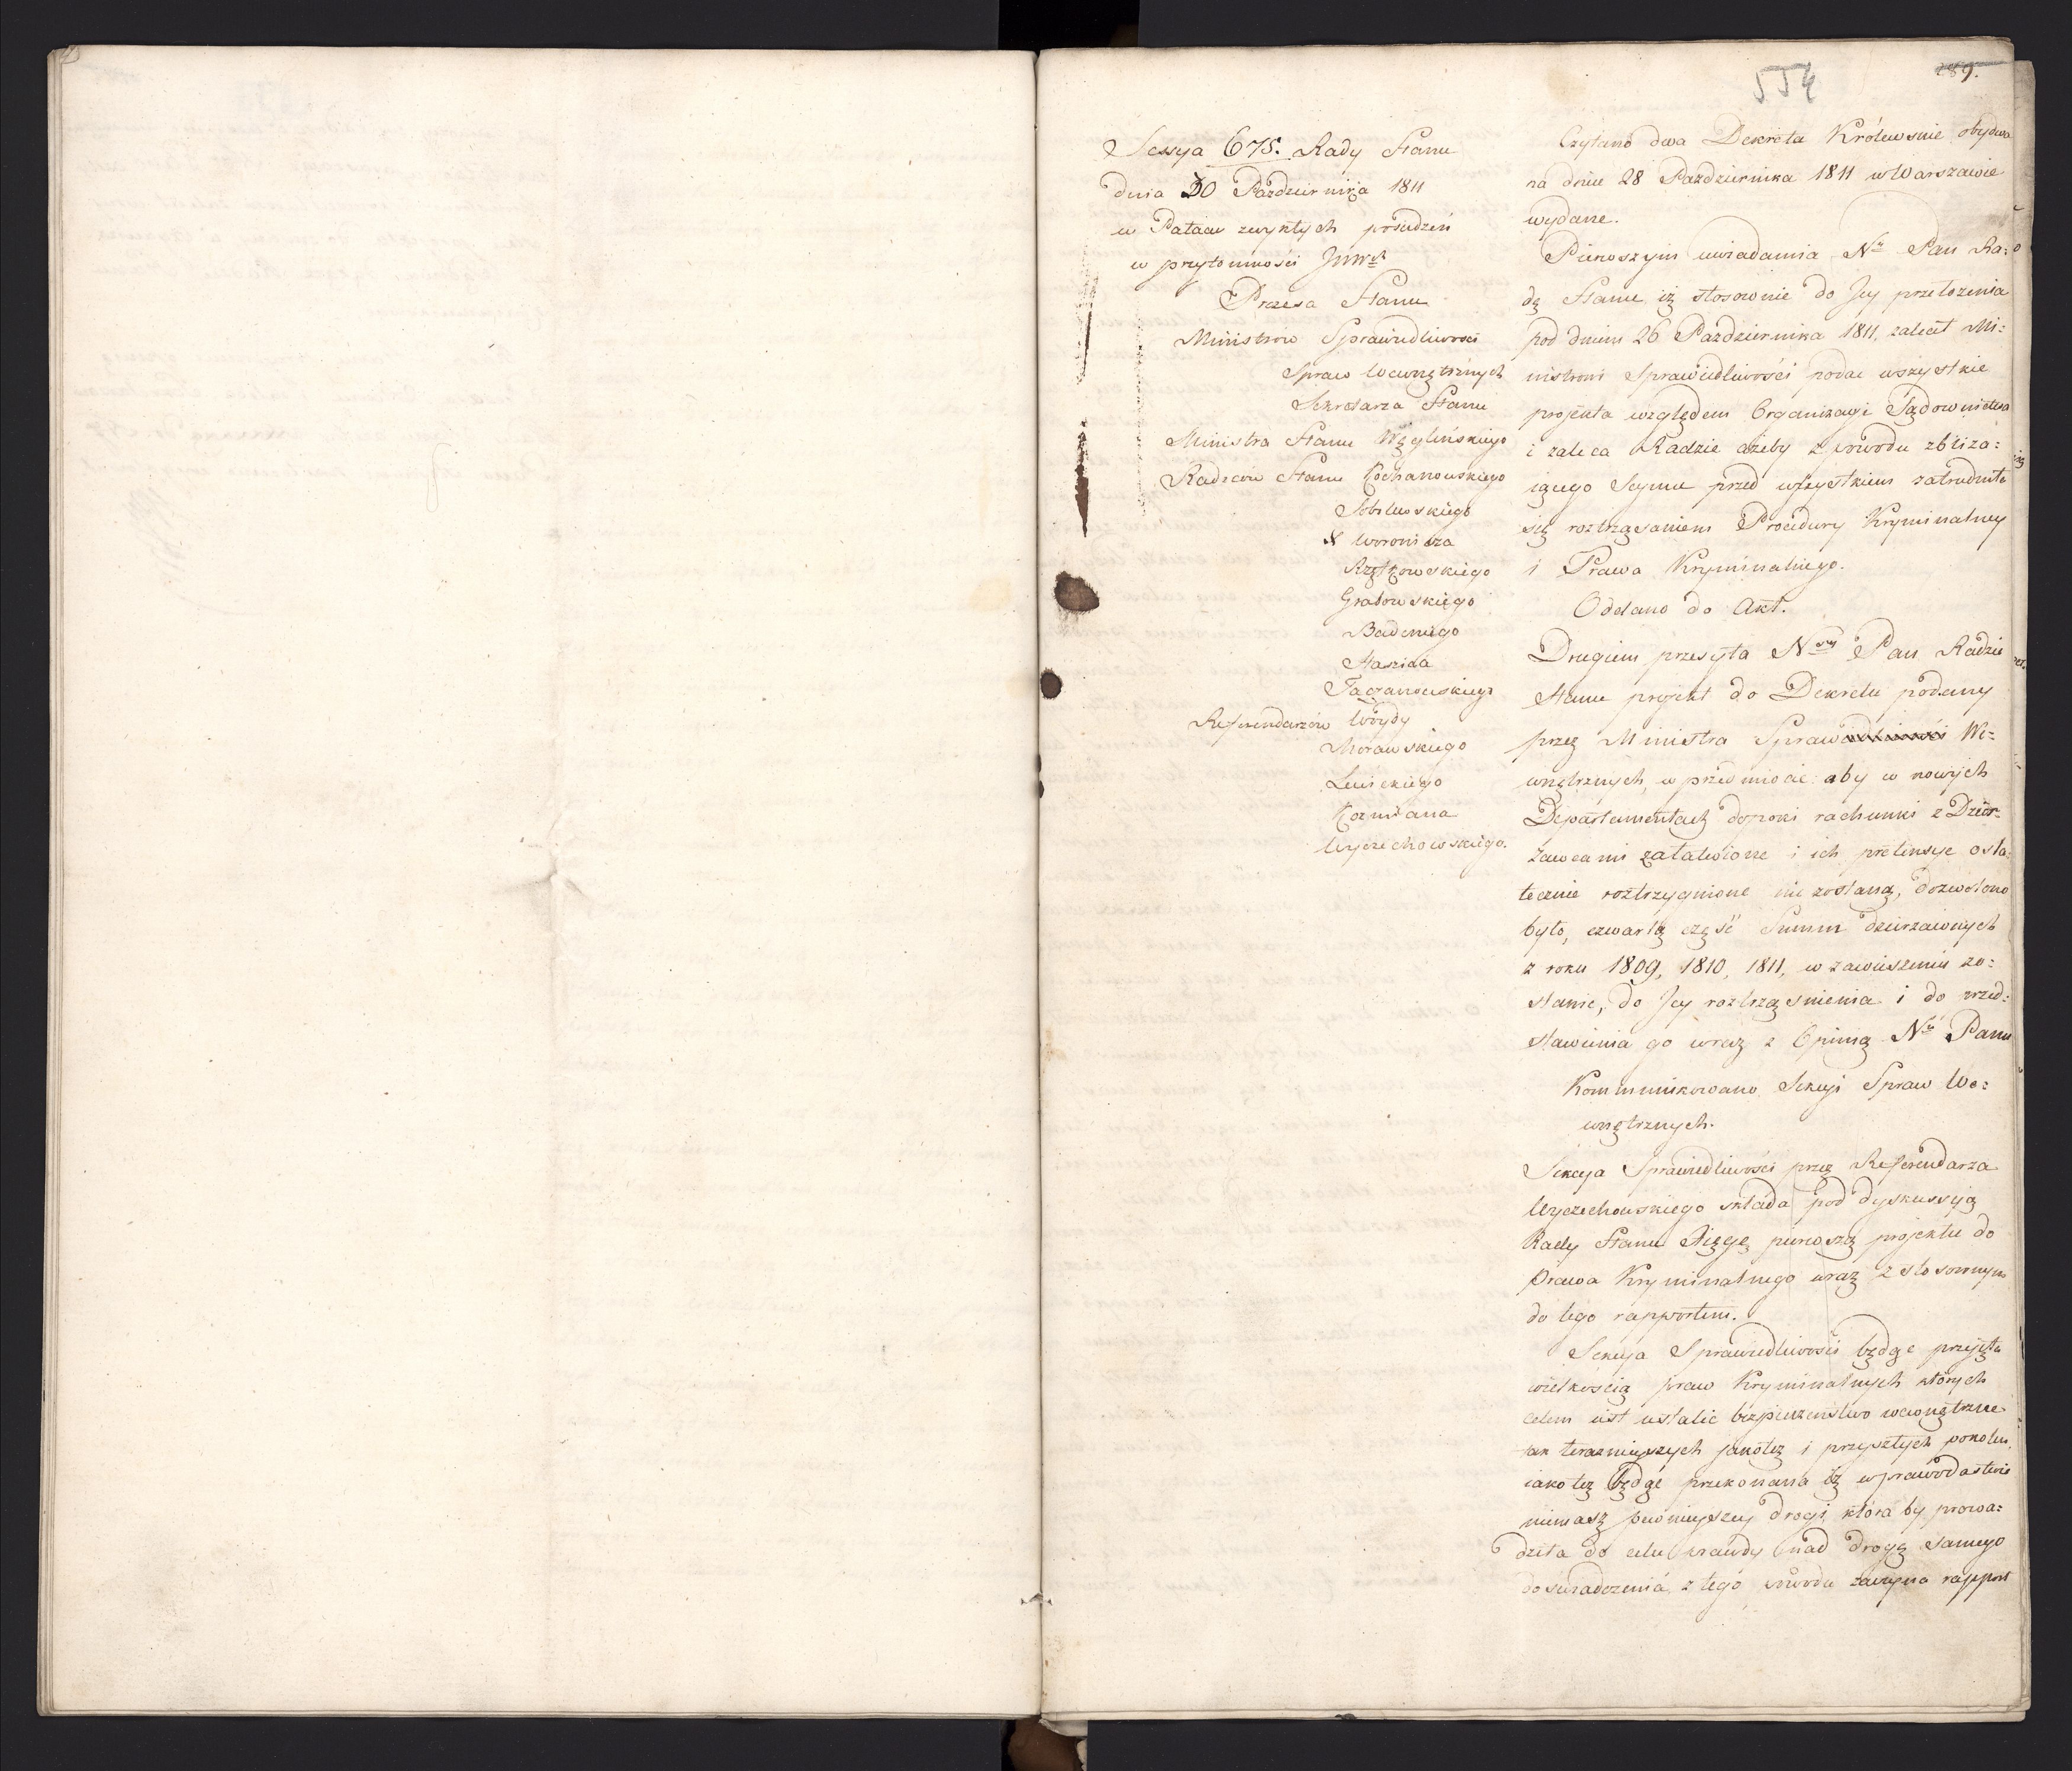 554
289.
Sessya 675. Rady Stanu
dnia 30 Pazdziernika 1811
w Pałacu zwykłych posiedzeń
w przytomności JWW
Prezesa Stanu
Ministrów Sprawiedliwości
Spraw Wewnętrznych
Sekretarza Stanu
Ministra Stanu Węglińskiego
Radzców Stanu Kochanowskiego
Sobolewskiego
X Woronicza
Rzętkowskiego
Grabowskiego
Badeniego
Staszica
Taczanowskiego
Referendarzów Woydy
Morawskiego
Lewickiego
Kozmiana
Wyczechowskiego.
Czytano dwa Dekreta Królewskie obydwa
na dniu 28 Pazdziernika 1811 w Warszawie
wydane.
Pierwszym uwiadamia Nn Pan Ra:
dę Stanu iż stosownie do Jey przełożenia
pod dniem 26 Pazdziernika 1811, zalecił Mi:
nistrowi Sprawiedliwości podać wszystkie
projekta względem Organizacyi Sądownictwa
i zaleca Radzie ażeby z powodu zbliża:
iącego Seymu przed wszystkiem zatrudniła
się roztrząsaniem Procedury Kryminalney
i Prawa Kryminalnego.
Oddano do Akt.
Drugiem przesyła Nny Pan Radzie
Stanu projekt do Dekretu podany
przez Ministra Spraw We:
wnętrznych, w przedmiocie: aby w nowych
Departamentach dopoki rachunki z Dzier:
żawcami załatwione i ich pretensye osta:
tecznie roztrzygnione nie zostaną, dozwolono
było, czwartą część Summ dzierżawnych
z roku 1809, 1810, 1811, w zawieszeniu zo:
stawić, do Jey roztrząśnienia i do przed:
stawienia go wraz z Opinią Nu Panu
Kommunikowano Sekcyi Spraw We:
wnętrznych.
Sekcya Sprawiedliwości przez Referendarza
Wyczechowskiego składa pod dyskussyą
Rady Stanu Xięgę pierwszą projektu do
Prawa Kryminalnego wraz z stosownym
do tego rapportem.
Sekcya Sprawiedliwości będąc przejęta
wielkością praw Kryminalnych których
celem iest ustalić bezpieczeństwo wewnętrzne
tak teraznieyszych jakotez i przyszłych pokoleń,
iako tez będąc przekonana iż w prawodastwie
niemasz pewnieyszey drogi, która by prowa:
dziła do celu prawdy nad drogę samego
doswiadczenia, z tego powodu zaczyna rapport